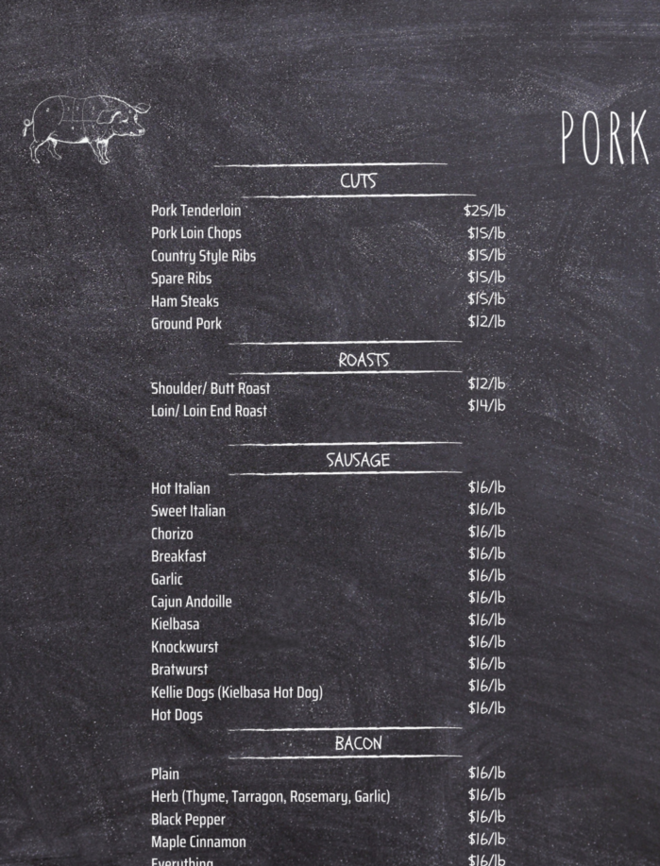 PORK
CUTS
Pork Tenderloin $25/lb
Pork Loin Chops $15/lb
Country Style Ribs $15/lb
Spare Ribs $15/lb
Ham Steaks $15/lb
Ground Pork $12/lb
ROASTS
Shoulder/ Butt Roast $12/lb
Loin/ Loin End Roast $14/lb
SAUSAGE
Hot Italian $16/lb
Sweet Italian $16/lb
Chorizo $16/lb
Breakfast $16/lb
Garlic $16/lb
Cajun Andoille $16/lb
Kielbasa $16/lb
Knockwurst $16/lb
Bratwurst $16/lb
Kellie Dogs (Kielbasa Hot Dog) $16/lb
Hot Dogs $16/lb
BACON
Plain $16/lb
Herb (Thyme, Tarragon, Rosemary, Garlic) $16/lb
Black Pepper $16/lb
Maple Cinnamon $16/lb
Everything $16/lb